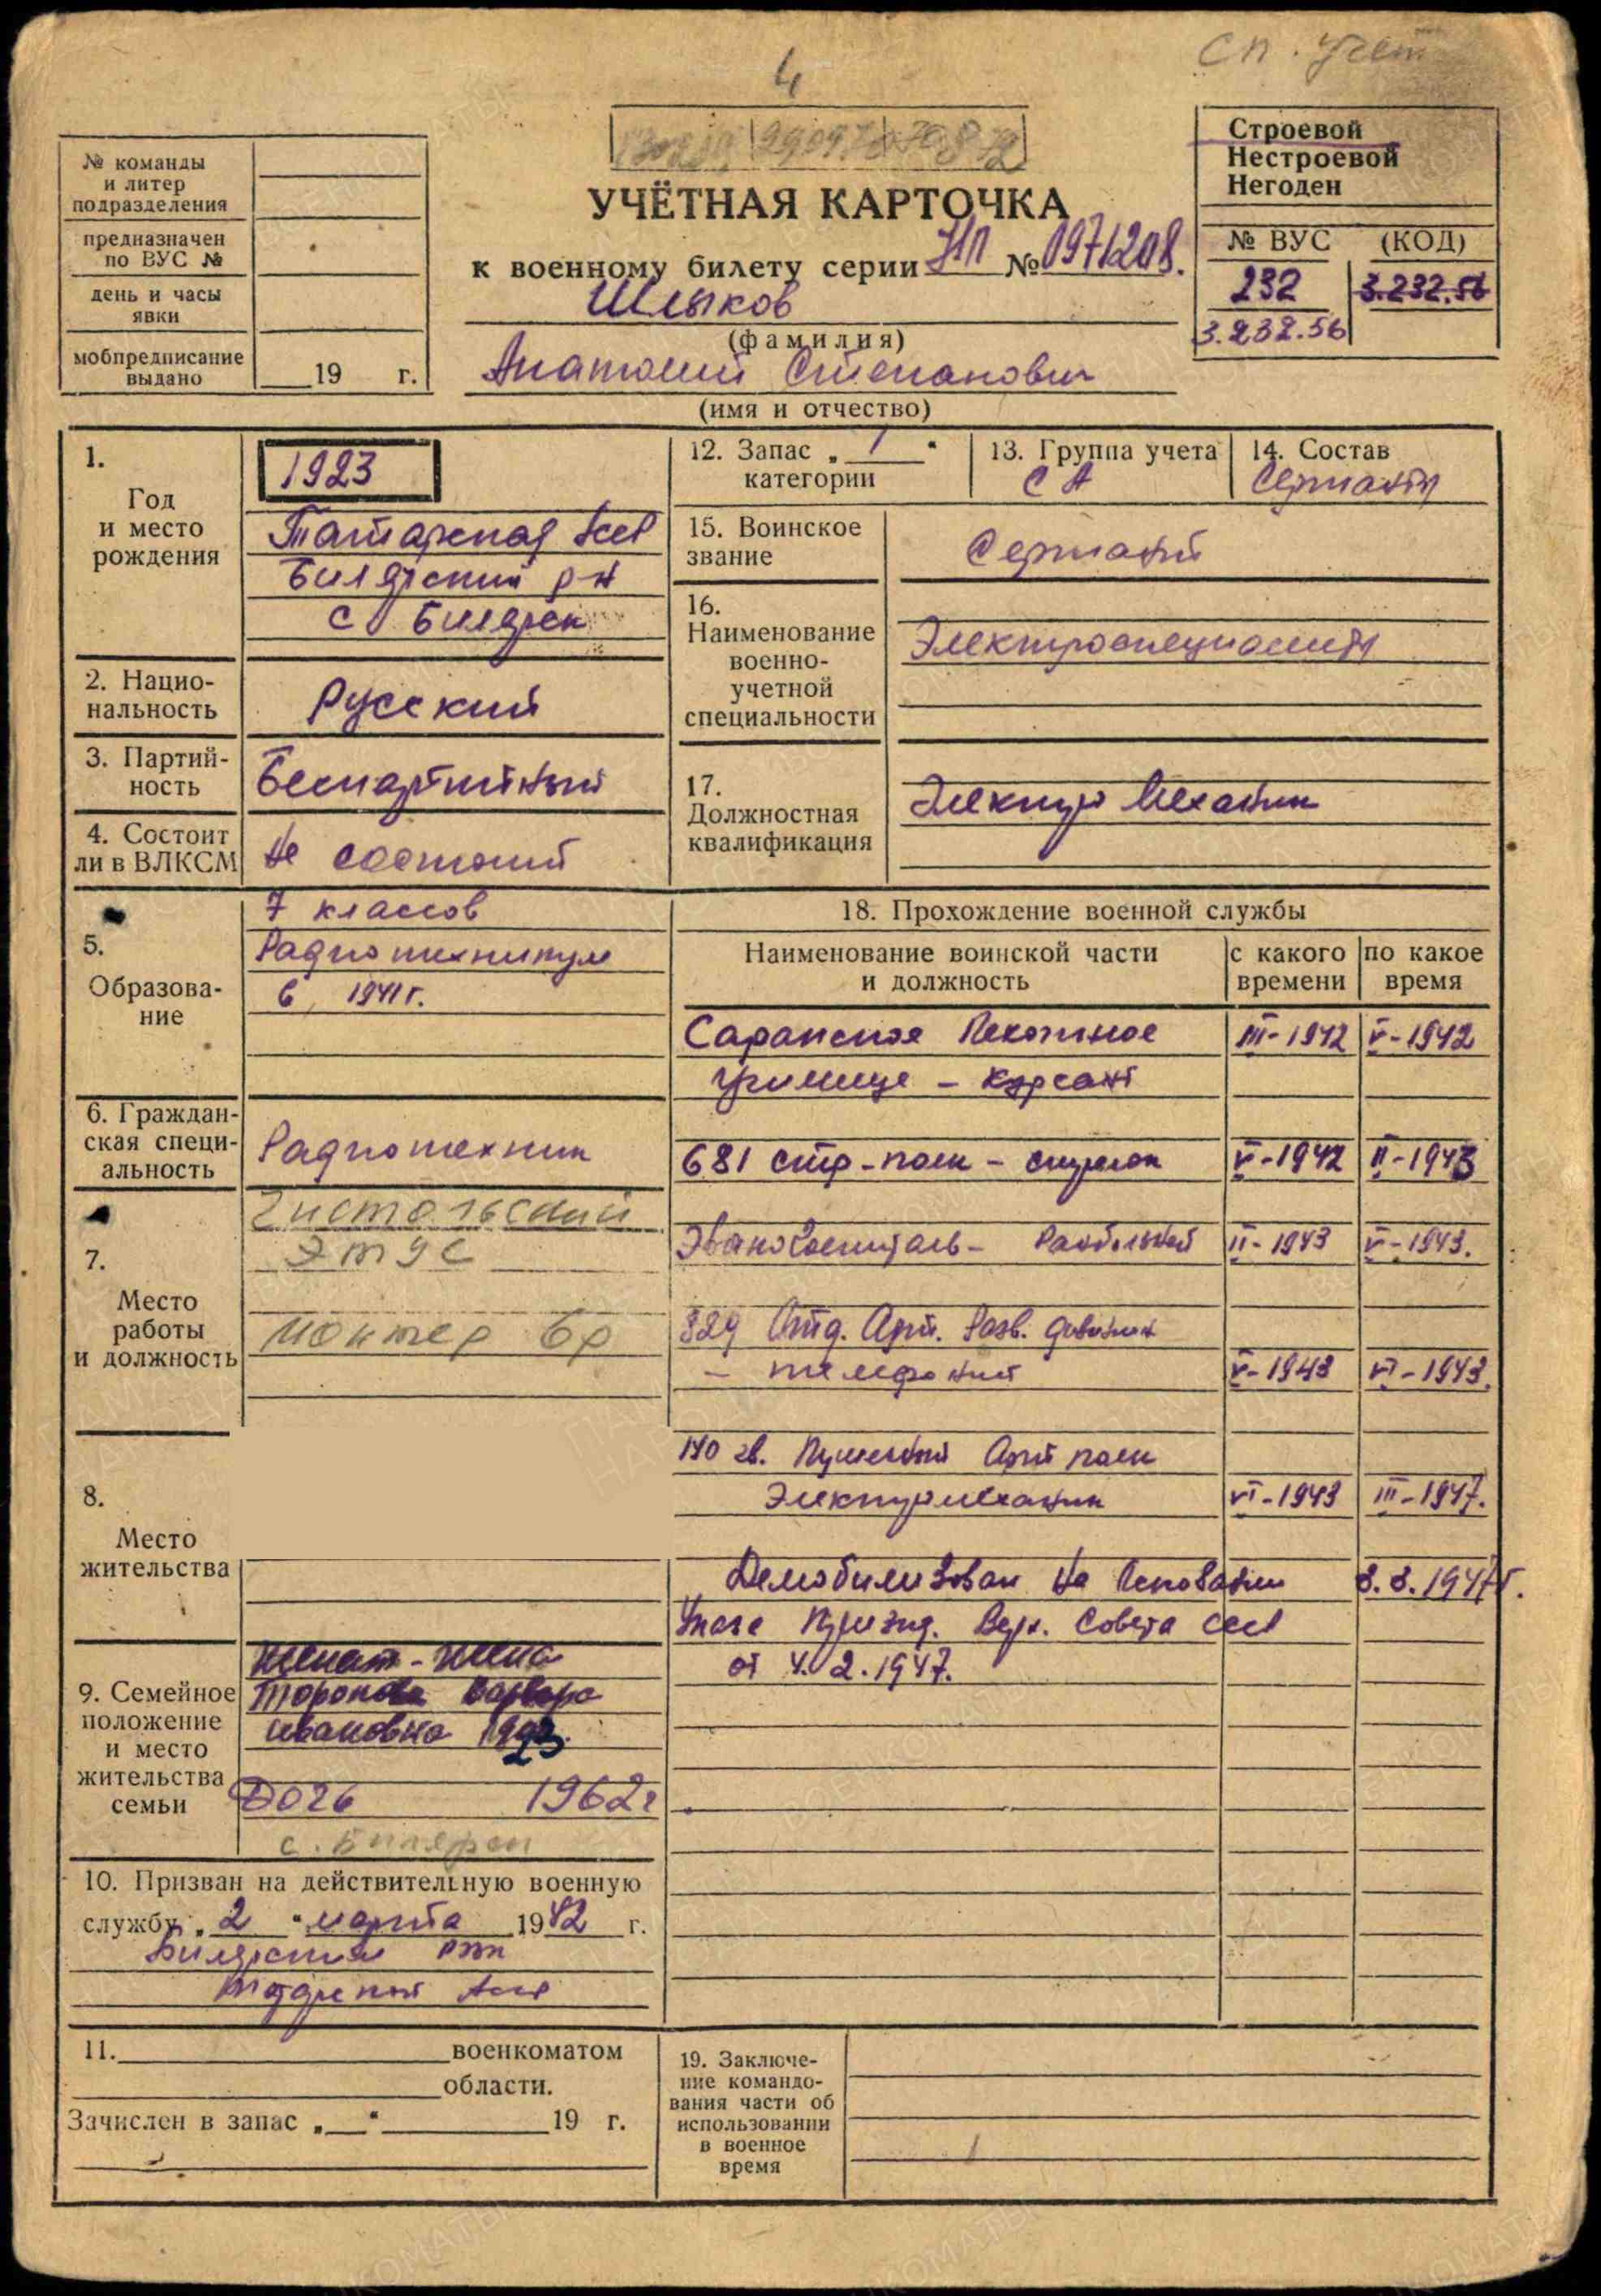 Сп. Учет
4
№ команды
и литер
подразделения
предназначен
по ВУС №
день и часы
явки
мобпредписание
выдано
19 г.
УЧЁТНАЯ КАРТОЧКА
к военному билету серии НП № 0971208.
Шлыков
(фамилия)
Анатолий Степанович
(имя и отчество)
Строевой
Нестроевой
Негоден
№ ВУС (КОД)
232 3.232.56
3.232.56
1.
Год
и место
рождения
1923
Татарская АССР
Билярский р-н
с Билярск
2. Нацио-
нальность
Русский
3. Партий-
ность
Беспартийный
4. Состоит
ли в ВЛКСМ
Не состоит
5.
Образова-
ние
7 классов
Радиотехникум
в 1941 г.
6. Граждан-
ская специ-
альность
Радиотехник
7.
Место
работы
и должность
Чистопольский
ЭТУС
Монтер 6р
8.
Место
жительства
9. Семейное
положение
и место
жительства
семьи
Женат - жена
Торопова Варвара
Ивановна 1923
Дочь 1962г
с. Билярск
10. Призван на действительную военную
службу „2“ марта 1942 г.
Билярским РВК
Татарской АССР
11. военкоматом
области.
Зачислен в запас „ “ 19 г.
12. Запас „1“
категории
13. Группа учета
СА
14. Состав
Сержанты
15. Воинское
звание
Сержант
16.
Наименование
военно-
учетной
специальности
Электроспециалисты
17.
Должностная
квалификация
Электро Механик
18. Прохождение военной службы
Наименование воинской части
и должность
с какого
времени
по какое
время
Саранское Пехотное III-1942 V-1942
училище - курсант
681 стр-полк - стрелок V-1942 II-1943
Эвакогоспиталь - Ранбольной II-1943 V-1943.
829 Отд. Арт. Разв. дивизион
- телефонист V-1943 VI-1943.
140 гв. Пушечный Арт полк
Электромеханик VI-1943 III-1947.
Демобилизован на Основании 8.3.1947г.
Указа Презид. Верх. Совета СССР
от 4.2.1947.
19. Заключе-
ние командо-
вания части об
использовании
в военное
время